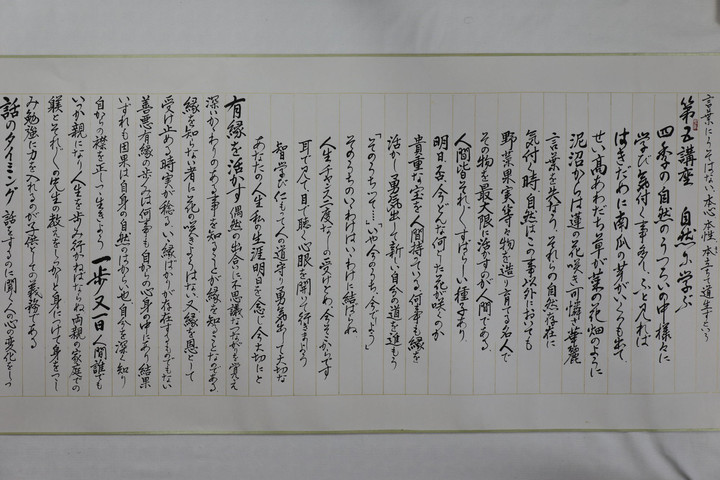 言葉にうそはない 本心 本性 本音を道幸という
第五講座 自然に学ぶ
四季の自然のうつろいの中 様々に
学び気付く事あり、ふと見れば
はきだめに南瓜の芽がいくつも出て
せい高あわだち草が菜の花畑のように
泥沼からは蓮の花咲き可憐が華麗
言葉を失なう、それらの自然存在に
気付く時 自然はこの事以外においても
野菜果実等々物を造り育てる名人で
その物を最大限に活かすのが人間である。
人間皆それぞれすばらしい種子あり
明日否、今どんな何した花が咲くのか
貴重な宝を人間持っている何事も縁を
活かし勇気出して新しい自分の道を進もう
「そのうちって…」「いや今のうち、今でしょう」
そのうちのいわけはいいわけに結ばらぬ
人生チャンス二度なしの受けとめ、今そこからです
耳で見て目で聴く心眼を開いて行きましょう
智学び仁もって人の道守り勇気出して大切な
あなたの人生私の生涯明日を念じ今大切にと
有縁を活かす 偶然の出合いに不思議なつながりを覚え
深いかかわりのある事を知ることが縁を知ることなのである
縁を知らない者に花の咲きようはない又縁を恩として
受け止める時実が稔る、いい縁ばかりが存在するものでもない
善悪有縁の歩みは何事も自からの心身の中にあり結果
いずれも因果は自身の自然のはからい也、自分を深く知り
自からの襟を正しつつ生きよう 一歩又一日 人間誰でも
いつか親になり人生を歩み行かねばならぬ両親の家庭での
躾とそれぞれの先生の教えをしっかりと身につけて身をつつし
み勉強に力を入れるのが子供としての義務である
話のタイミング 話をするのに聞く人の心の変化をしっ